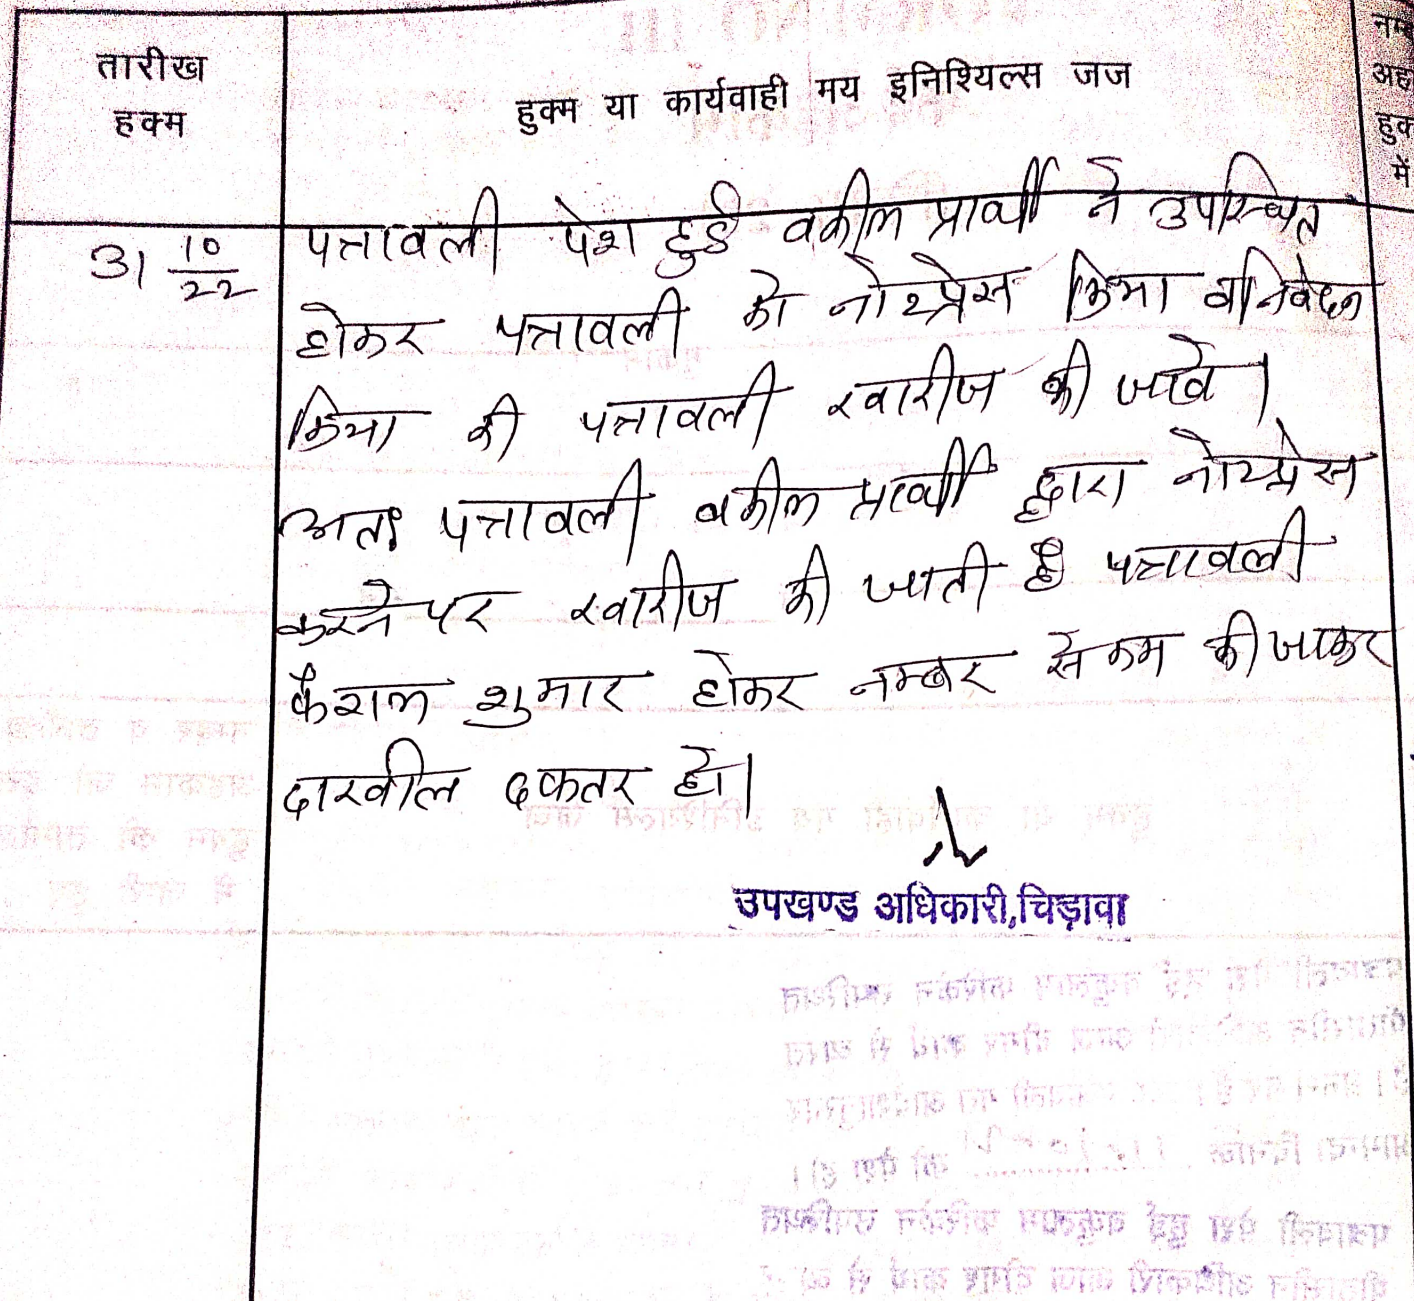 तारीख
हक्म
हुक्म या कार्यवाही मय इनिश्यिल्स जज
नम्ब
अह
हुक
में
31 10/22
पत्तावली पेश हुई वकील प्रार्थी ने उपस्थित
होकर पत्रावली को नोटप्रेस किया व निवेदन
किया की पत्तावली खारीज की जावे।
अतः पत्तावली वकील प्रार्थी द्वारा नोटप्रेस
करने पर खारीज की जाती है पत्रावली
फैशल शुमार होकर नम्बर से कम की जाकर
दाखील दफतर हो।
उपखण्ड अधिकारी,चिड़ावा